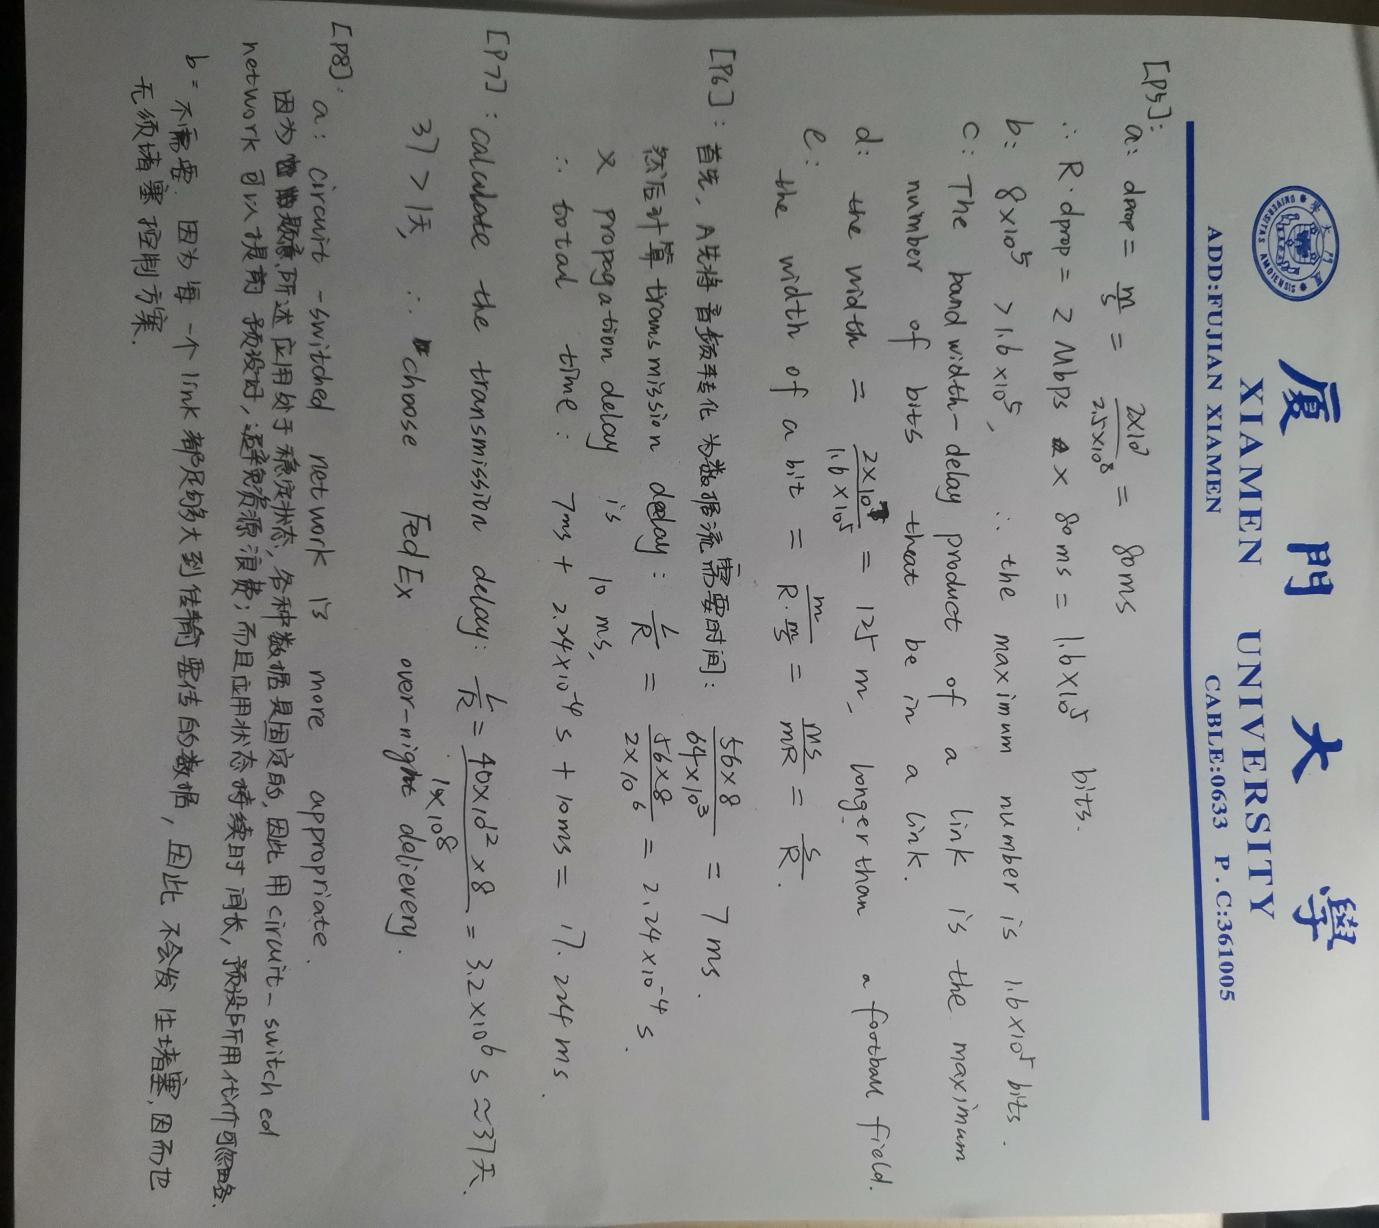 厦門大學
XIAMEN UNIVERSITY
ADD:FUJIAN XIAMEN CABLE:0633 P.C:361005
[P5]:
a: dprop = m/s = 2×10⁷/2.5×10⁸ = 80ms
∴ R·dprop = 2 Mbps × 80ms = 1.6×10⁵ bits.
b: 8×10⁵ > 1.6×10⁵, ∴ the maximum number is 1.6×10⁵ bits.
c: The band width-delay product of a link is the maximum
number of bits theat be in a link.
d: the width = 2×10⁷/1.6×10⁵ = 125 m, longer than a football field.
e: the width of a bit = m/R·m/s = ms/mR = s/R.
[P6]: 首先, A先将音频转化为数据流需要时间: 56×8/64×10³ = 7 ms.
然后计算transmission delay: L/R = 56×8/2×10⁶ = 2.24×10⁻⁴ s.
× propagation delay is 10 ms,
∴ total time: 7ms + 2.24×10⁻⁴ s + 10ms = 17.224 ms.
[P7]: calculate the transmission delay: L/R = 40×10¹²×8/1×10⁸ = 3.2×10⁶ s ≈37天.
37 > 1天, ∴ choose FedEx over-night delievery.
[P8]:
a: circuit-switched network is more appropriate.
因为题意所述应用处于稳定状态, 各种数据是固定的, 因此用circuit-switched
network 可以提前预设好, 避免资源浪费; 而且应用状态持续时间长, 预设所用代价可忽略.
b: 不需要. 因为每一个link都足够大到传输要传的数据, 因此不会发生堵塞, 因而也
无须堵塞控制方案.